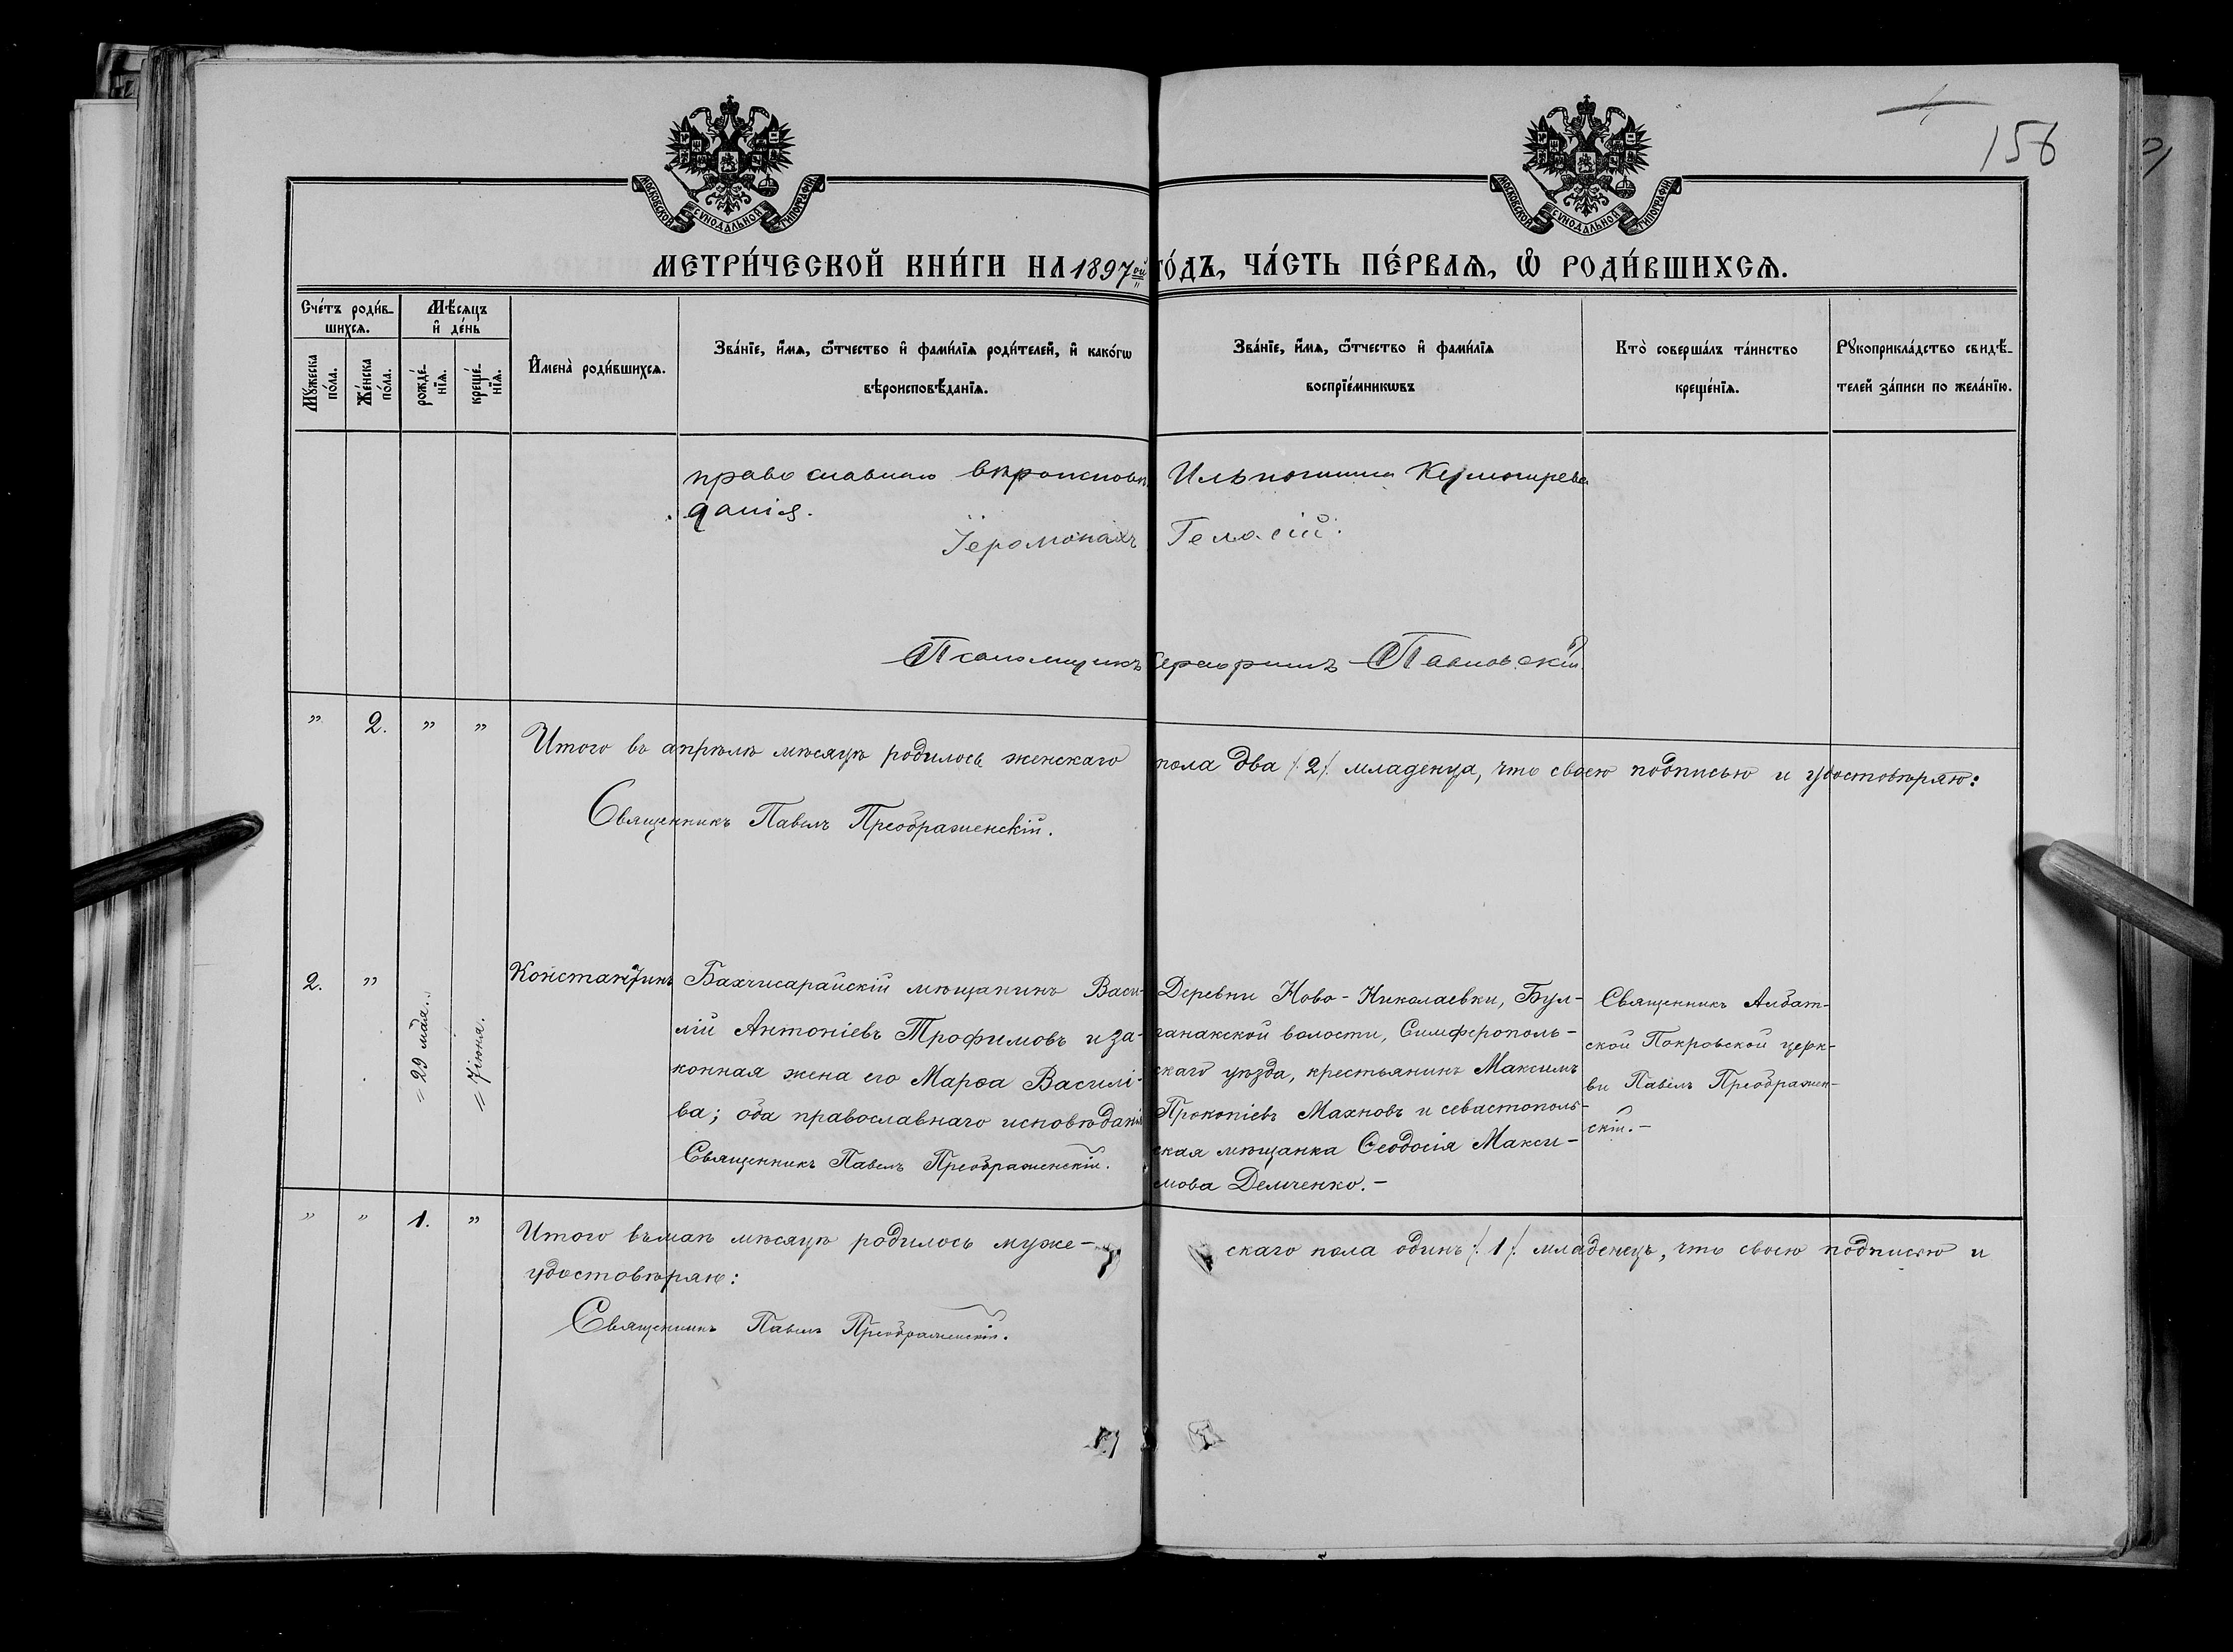 156
МОСКОВСКОЙ СѴНОДАЛЬНОЙ ТИПОГРАФІИ
МОСКОВСКОЙ СѴНОДАЛЬНОЙ ТИПОГРАФІИ
МЕТРИ́ЧЕСКОЙ КНИ́ГИ НА 1897ой ГО́ДЪ, ЧА́СТЬ ПЕ́РВАѦ, Ѡ҆ РОДИ́ВШИХСѦ.
Сче́тъ роди́в-
шихсѧ.
Мѣ́сѧцъ
и҆ де́нь
Мꙋ́жеска
по́ла.
Же́нска
по́ла.
рожде́-
нїѧ.
креще́-
нїѧ.
И҆мена̀ роди́вшихсѧ.
Зва́нїе, и҆́мѧ, ѻ҆́тчество и҆ фами́лїѧ роди́телей, и҆ како́гѡ
вѣроисповѣ́данїѧ.
Зва́нїе, и҆́мѧ, ѻ҆́тчество и҆ фами́лїѧ
воспрїе́мникѡвъ
Кто̀ соверша́лъ та́инство
креще́нїѧ.
Рꙋкоприкла́дство свидѣ́-
телей за́писи по жела́нїю.
православнаго вѣроисповѣ-
данія.
Іеромонахъ Геласій.
Псаломщикъ Серафимъ Павловскій
" 2. " "
Итого въ апрѣлѣ мѣсяцѣ родилось женскаго пола два /. 2 /. младенца, что своею подписью и удостовѣряю:
Священникъ Павелъ Преображенскій.
2. "
29 мая.
7 іюня.
Константинъ
Бахчисарайскій мѣщанинъ Васи-
лій Антоніевъ Трофимовъ и за-
конная жена его Марѳа Василі-
ва; оба православнаго исповѣданія
Священникъ Павелъ Преображенскій.
Деревни Ново-Николаевки, Бул-
ганакской волости, Симферополь-
скаго уѣзда, крестьянинъ Максимъ
Прокопіевъ Махновъ и севастополь-
ская мѣщанка Ѳеодосія Макси-
мова Демченко.-
Священникъ Албат-
ской Покровской церк-
ви Павелъ Преображен-
скій.-
" " 1. "
Итого въ маѣ мѣсяцѣ родилось муже-скаго пола одинъ /. 1 /. младенецъ, что своею подписью и
удостовѣряю:
Священникъ Павелъ Преображенскій.